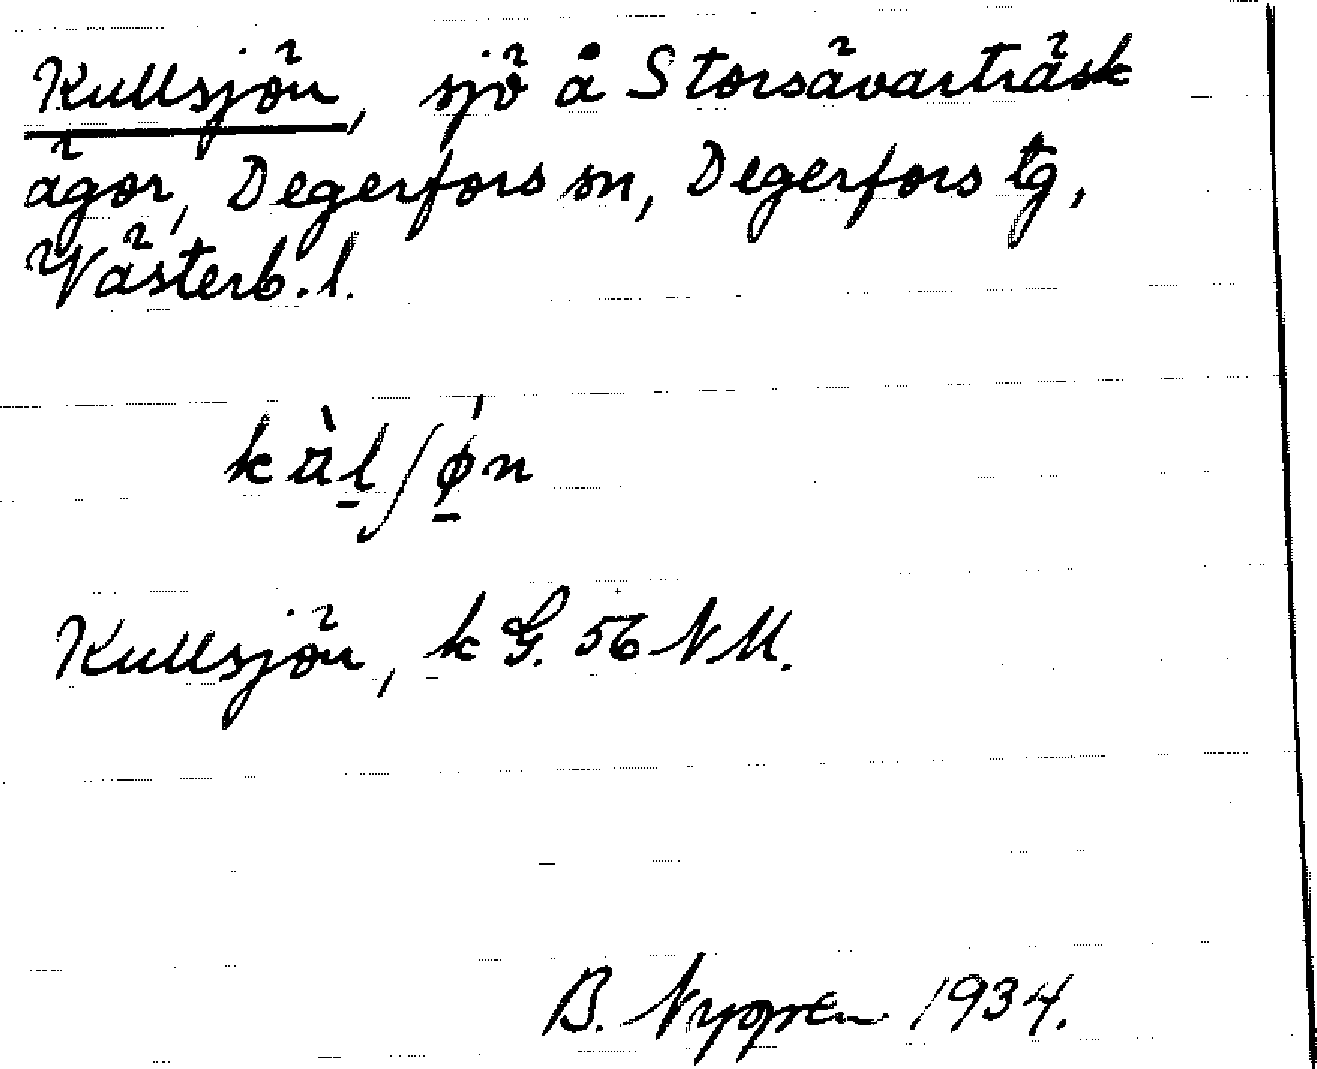 Kullsjön, sjö å Storsävarträsk
ägor, Degerfors sn, Degerfors tg,
Västerb. l.
Kullsjön, k G. 56 NM.
B. Nygren 1934.